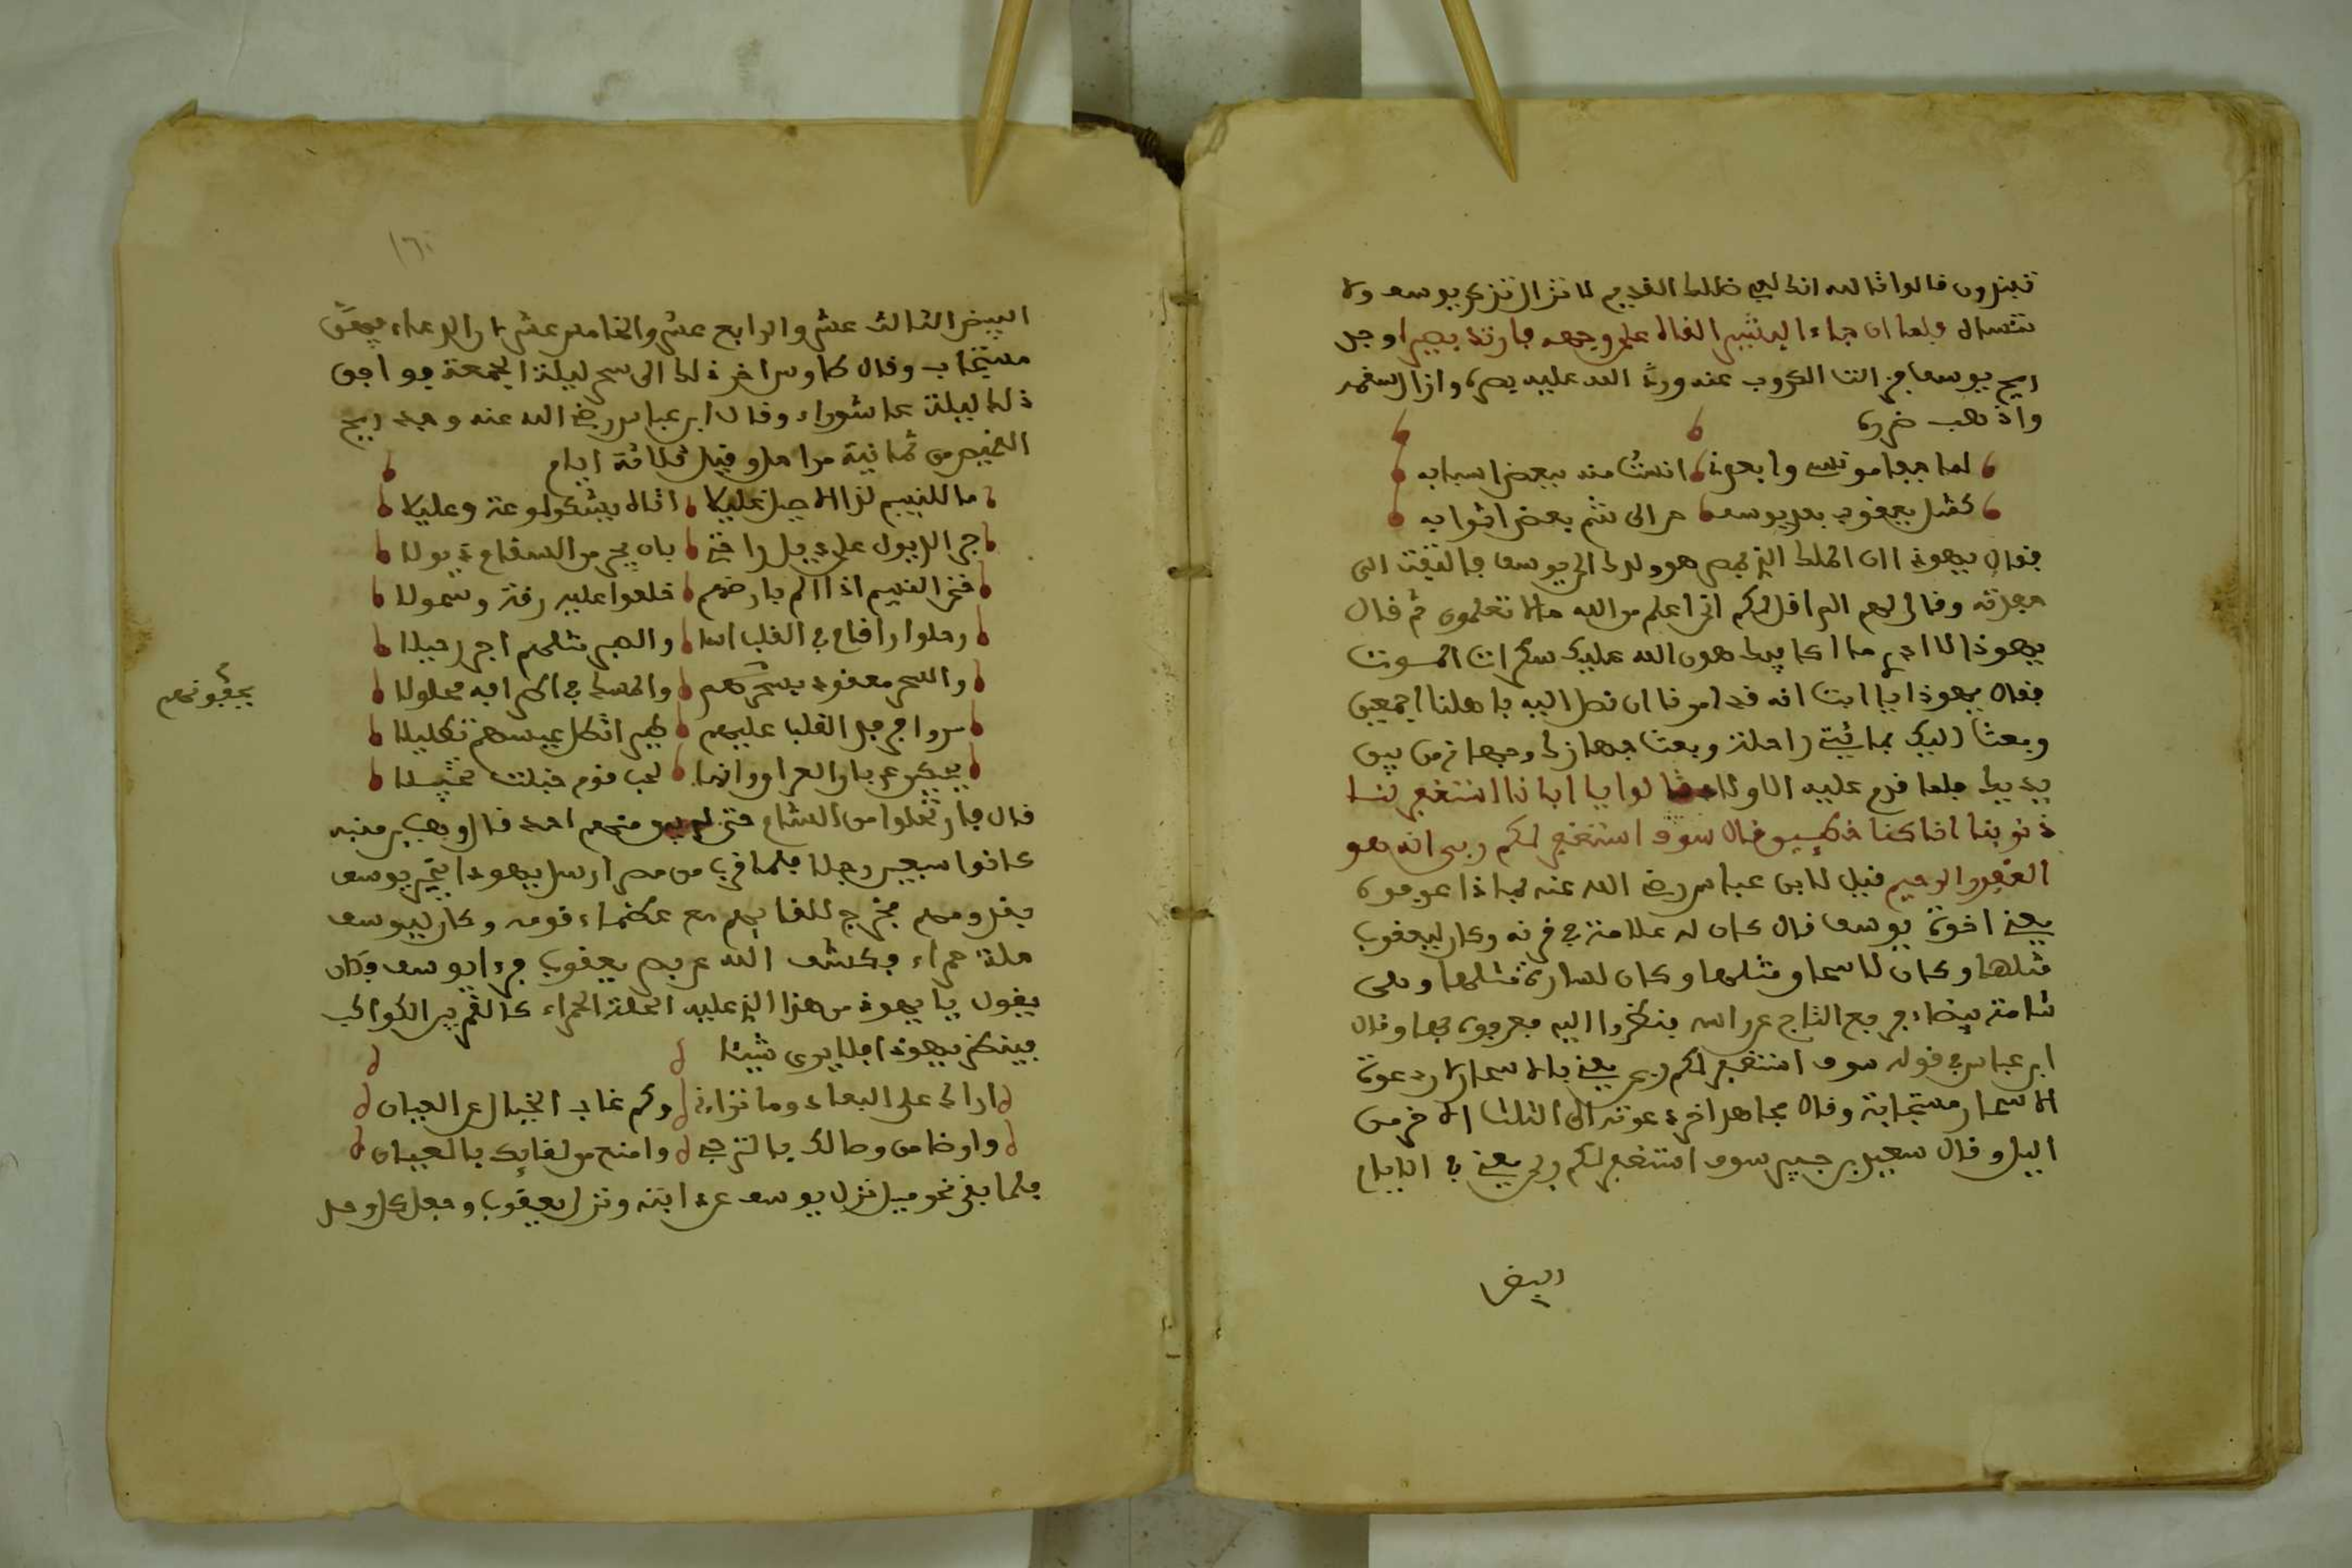 تفندون قالوا تالله انك لفي ضللك القديم لا تزال تذكر يوسف ولا
تنساه فلما ان جاء البشير القاه على وجهه فارتد بصيرا وجد
ريح يوسف فزالت الكروب عنه ورد الله عليه بصره وازال سقمه
واذهب ضره
لما جفا مونسي وابعدني انست منه ببعض اسبابه
كمثل يعقوب بعد يوسف حن الى شم بعض اثوابه
فقال يهوذا ان الملك الذي بمصر هو ولدك الى يوسف فالتفت الى
حفدته وقال لهم الم اقل لكم اني اعلم من الله ما لا تعلمون ثم قال
يهوذا لا ادري ما اكافيك هون الله عليك سكرات الموت
فقال يهوذا يا ابت انه قد امرنا ان نصل اليه باهلنا اجمعين
وبعث اليك بمائتي راحلة وبعث جهازك وجهازي من بين
يديك فلما قدم عليه الاولاد قالوا يا ابانا استغفر لنا
ذنوبنا انا كنا خطيين قال سوف استغفر لكم ربي انه هو
الغفور الرحيم قيل لابن عباس رضي الله عنه بماذا عرفوه
يعني اخوة يوسف قال كان له علامة في قرنه وكان ليعقوب
مثلها وكان لاسحاق مثلها وكان لسارة مثلها وهي
شامة بيضاء فرفع التاج عن راسه فنظروا اليه فعرفوه بها وقال
ابن عباس في قوله سوف استغفر لكم ربي يعني بالاسحار لان دعوة
الاسحار مستجابة وقال مجاهد اخر دعوته الى الثلث الاخر من
اليل وقال سعيد بن جبير سوف استغفر لكم ربي يعني في الايام
البيض
البيض الثالث عشر والرابع عشر والخامس عشر لان الدعاء فيهن
مستجاب وقال طاوس اخر ذلك الى سحر ليلة الجمعة فوافق
ذلك ليلة عاشوراء وقال ابن عباس رضي الله عنه وجد ريح
القميص من ثمانية مراحل وقيل ثلاثة ايام
ما للنسيم لذا الاصيل عليلا اتراه يشكو لوعة وعليلا
جر الذيول على ديار احبتي فاتى يجر من السقام ذيولا
فخر النسيم اذا الم بارضهم خلعوا عليه رقة وشمولا
رحلوا رافاع في القلب اسا والصبر مثلهم اجد رحيلا
والسحر معقود بسحرهم والمسك في اطرافه محلولا
سروا فرجل القلب عليهم ظهر اثكل عيسهم تكليلا
يبكي على دار العراوانها لحب قوم خبلت تخبيلا
قال فارتحلوا من الشام حتى لم يبق منهم احد قال وهب بن منبه
كانوا سبعين رجلا فلما قرب من مصر ارسل يهوذا يخبر يوسف
بقدومهم فخرج للقايهم مع عظماء قومه وكان ليوسف
حلة حمراء فكشف الله عن بصر يعقوب فرءا يوسف فكان
يقول يا يهوذا من هذا الذي عليه الحلة الحمراء كالقمر بين الكواكب
فينظر يهوذا فلا يرى شيئا
اراك على البعاد وما تراني وكم غاب الخيال عن العيان
وارضا من وصالك بالترجي وامنح من لقايك بالعيان
فلما بقي نحو ميل نزل يوسف عن دابته ونزل يعقوب وجعل كل واحد